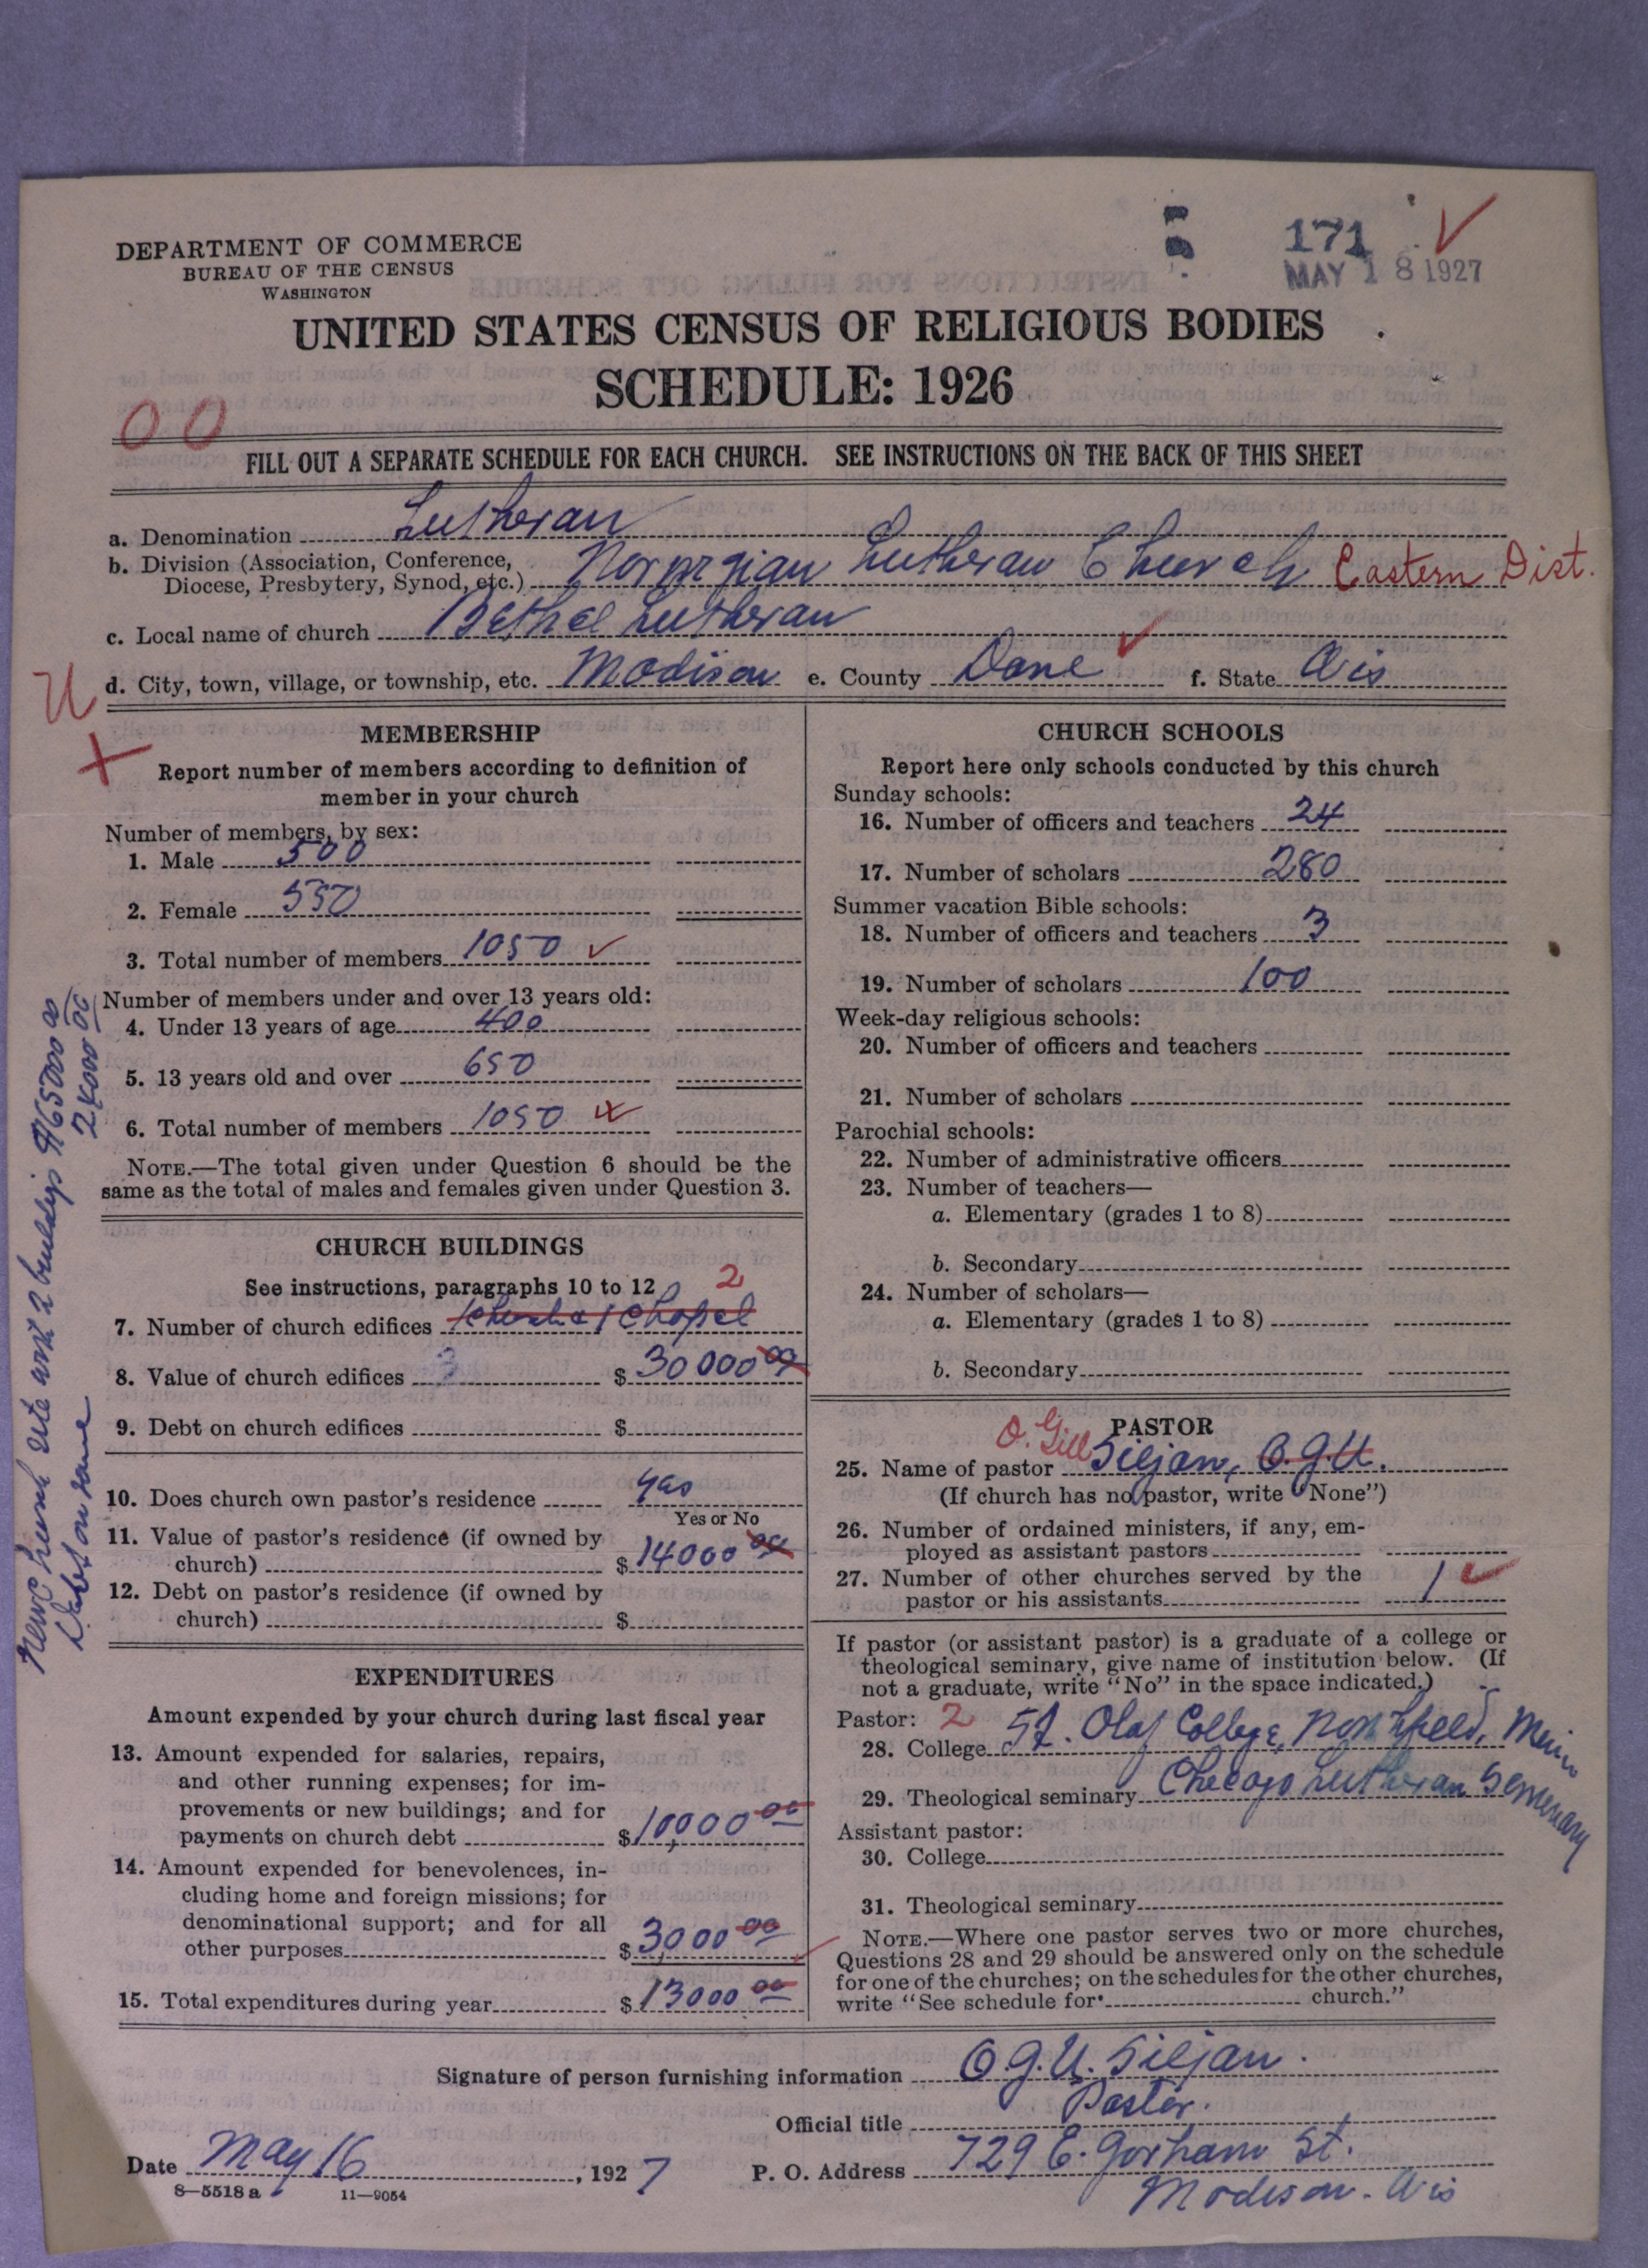 DEPARTMENT OF COMMERCE
BUREAU OF THE CENSUS
WASHINGTON
171
MAY 18 1927
UNITED STATES CENSUS OF RELIGIOUS BODIES
SCHEDULE: 1926
00
FILL OUT A SEPARATE SCHEDULE FOR EACH CHURCH. SEE INSTRUCTIONS ON THE BACK OF THIS SHEET
a. Denomination Lutheran
b. Division (Association, Conference,
Diocese, Presbytery, Synod, etc.) Norwegian Lutheran Church Eastern Dist.
c. Local name of church Bethel Lutheran
d. City, town, village, or township, etc. Madison e. County Dane f. State Wis
U
MEMBERSHIP
Report number of members according to definition of
member in your church
Number of members, by sex:
1. Male 500
2. Female 550
3. Total number of members 1050
Number of members under and over 13 years old:
4. Under 13 years of age 400
5. 13 years old and over 650
6. Total number of members 1050
NOTE.—The total given under Question 6 should be the
same as the total of males and females given under Question 3.
CHURCH BUILDINGS
See instructions, paragraphs 10 to 12 2
7. Number of church edifices 1 Church & 1 Chapel
8. Value of church edifices $30000 00
9. Debt on church edifices $
10. Does church own pastor's residence yes
Yes or No
11. Value of pastor's residence (if owned by
church) $14000 00
12. Debt on pastor's residence (if owned by
church) $
EXPENDITURES
Amount expended by your church during last fiscal year
13. Amount expended for salaries, repairs,
and other running expenses; for im-
provements or new buildings; and for
payments on church debt $10,000 00
14. Amount expended for benevolences, in-
cluding home and foreign missions; for
denominational support; and for all
other purposes $3,000 00
15. Total expenditures during year $13000 00
New church site with 2 buildings $65000 00
Debt on same 24000 00
CHURCH SCHOOLS
Report here only schools conducted by this church
Sunday schools:
16. Number of officers and teachers 24
17. Number of scholars 280
Summer vacation Bible schools:
18. Number of officers and teachers 3
19. Number of scholars 100
Week-day religious schools:
20. Number of officers and teachers
21. Number of scholars
Parochial schools:
22. Number of administrative officers
23. Number of teachers—
a. Elementary (grades 1 to 8)
b. Secondary
24. Number of scholars—
a. Elementary (grades 1 to 8)
b. Secondary
PASTOR
O. Gill
25. Name of pastor Siljan, O.G.U.
(If church has no pastor, write "None")
26. Number of ordained ministers, if any, em-
ployed as assistant pastors
27. Number of other churches served by the
pastor or his assistants 1
If pastor (or assistant pastor) is a graduate of a college or
theological seminary, give name of institution below. (If
not a graduate, write "No" in the space indicated.)
Pastor: 2
28. College St. Olaf College, Northfield, Minn
29. Theological seminary Chicago Lutheran Seminary
Assistant pastor:
30. College
31. Theological seminary
NOTE.—Where one pastor serves two or more churches,
Questions 28 and 29 should be answered only on the schedule
for one of the churches; on the schedules for the other churches,
write "See schedule for church."
Signature of person furnishing information O.G.U. Siljan.
Official title Pastor.
Date May 16, 1927 P. O. Address 729 E. Gorham St.
Madison - Wis
8—5518 a 11—9054